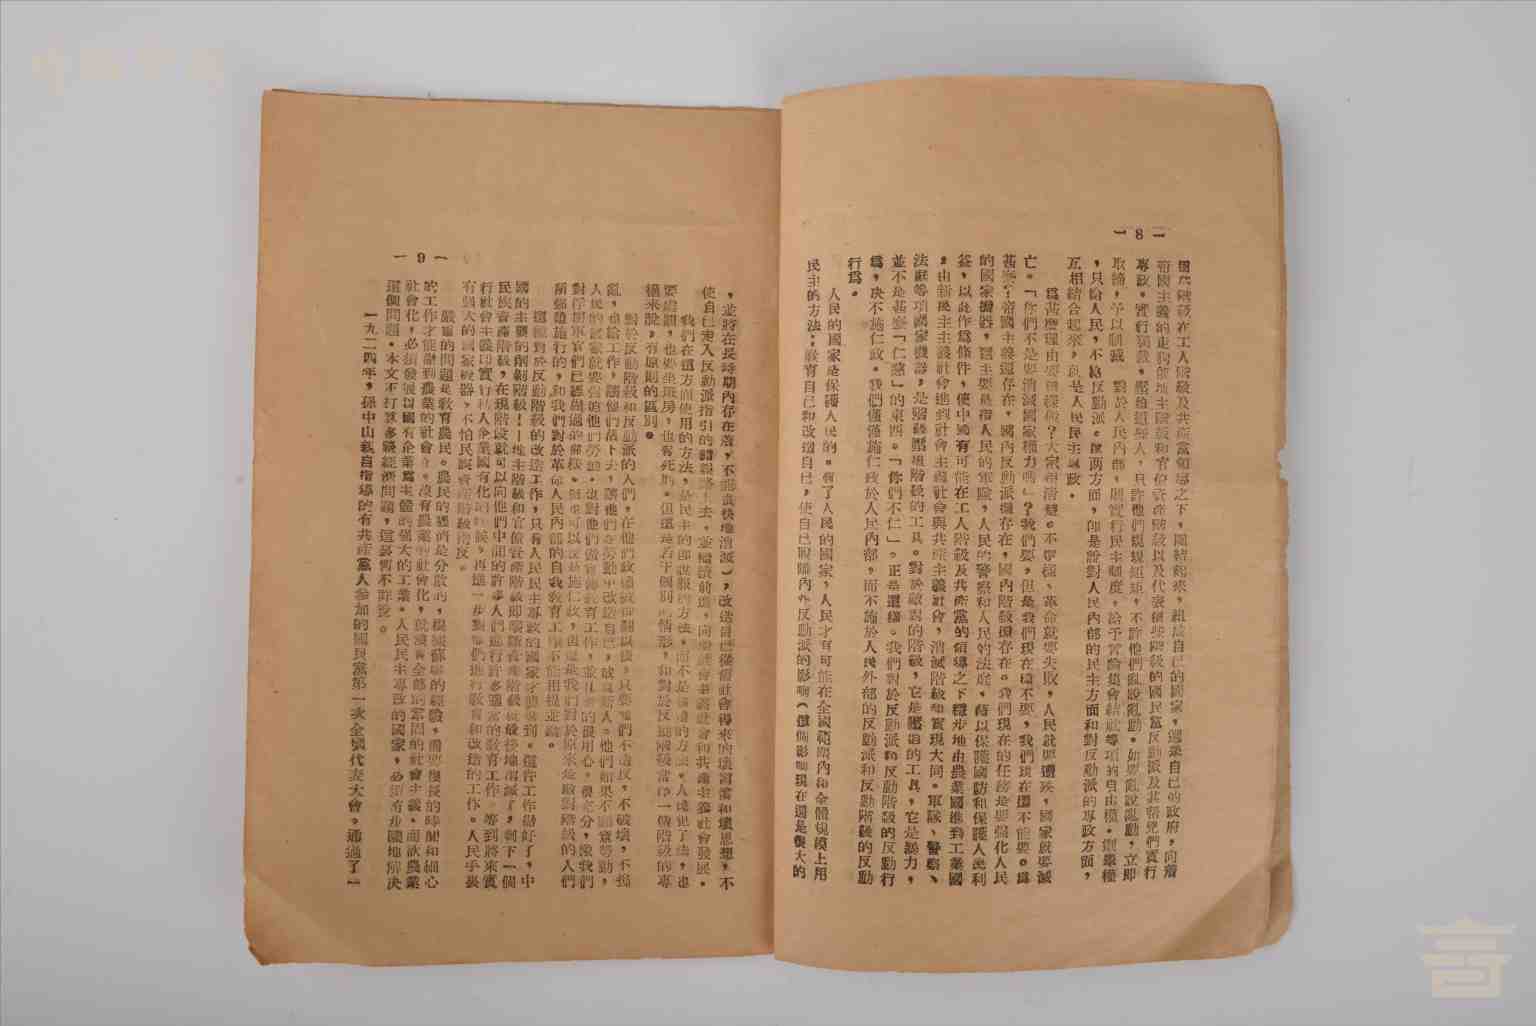 —8—
這些階級在工人階級及共產黨領導之下,團結起來,組成自己的國家,選舉自己的政府,向着
帝國主義的走狗即地主階級和官僚資產階級以及代表這些階級的國民黨反動派及其幫兇們實行
專政,實行獨裁,壓迫這些人,只許他們規規矩矩,不許他們亂說亂動。如要亂說亂動,立即
取締,予以制裁。對於人民內部,則實行民主制度,給予言論集會結社等項的自由權。選舉權
,只給人民,不給反動派。這兩方面,即是說對人民內部的民主方面和對反動派的專政方面,
互相結合起來,就是人民民主專政。
爲甚麼理由要這樣做?大家很清楚。不這樣,革命就要失敗,人民就要遭殃,國家就要滅
亡。「你們不是要消滅國家權力嗎」?我們要,但是我們現在還不要,我們現在還不能要。爲
甚麼?帝國主義還存在,國內反動派還存在,國內階級還存在。我們現在的任務是要強化人民
的國家機器,這主要是指人民的軍隊,人民的警察和人民的法庭,藉以保護國防和保護人民利
益,以此作爲條件,使中國有可能在工人階級及共產黨的領導之下穩步地由農業國進到工業國
,由新民主主義社會進到社會主義社會與共產主義社會,消滅階級和實現大同。軍隊、警察、
法庭等項國家機器,是階級壓迫階級的工具。對於敵對的階級,它是壓迫的工具,它是暴力,
並不是甚麼「仁慈」的東西。「你們不仁」。正是這樣。我們對於反動派和反動階級的反動行
爲,決不施仁政。我們僅僅施仁政於人民內部,而不施於人民外部的反動派和反動階級的反動
行爲。
人民的國家是保護人民的。有了人民的國家,人民才有可能在全國範圍內和全體規模上用
民主的方法,教育自己和改造自己,使自己脫離內外反動派的影响(這個影响現在還是很大的
—9—
,並將在長時期內存在着,不能很快地消滅),改造自己從舊社會得來的壞習慣和壞思想,不
使自己走入反動派指引的錯誤路上去,並繼續前進,向着社會主義社會和共產主義社會發展。
我們在這方面使用的方法,是民主的即說服的方法,而不是強迫的方法。人民犯了法,也
要處罰,也要坐班房,也有死刑。但這是若干個別的情形,和對於反動階級當作一個階級的專
政來說,有原則的區別。
對於反動階級和反動派的人們,在他們政權被推翻以後,只要他們不造反,不破壞,不搗
亂,也給工作,讓他們活下去,讓他們在勞動中改造自己,成爲新人。他們如果不願意勞動,
人民的國家就要強迫他們勞動。也對他們做宣傳教育工作,並且做的很用心,很充分,像我們
對俘虜軍官們已經做過的那樣。這也可以說是施仁政,但這是我們對於原來是敵對階級的人們
所強迫施行的,和我們對於革命人民內部的自我教育工作不能相提並論。
這種對於反動階級的改造工作,只有人民民主專政的國家才能做到。這件工作做好了,中
國的主要的剝削階級——地主階級和官僚資產階級即壟斷資產階級就最後地消滅了,剩下一個
民族資產階級,在現階段就可以向他們中間的許多人們進行許多適當的教育工作。等到將來實
行社會主義即實行私人企業國有化的時候,再進一步對他們進行教育和改造的工作。人民手裏
有強大的國家機器,不怕民族資產階級造反。
嚴重的問題是教育農民。農民的經濟是分散的,根據蘇聯的經驗,需要很長的時間和細心
的工作才能做到農業的社會化。沒有農業的社會化,就沒有全部的鞏固的社會主義。而欲農業
社會化,必須發展以國有企業爲主體的強大的工業。人民民主專政的國家,必須有步驟地解決
這個問題。本文不打算多談經濟問題,這裏暫不詳說。
一九二四年,孫中山親自指導的有共產黨人參加的國民黨第一次全國代表大會,通過了一